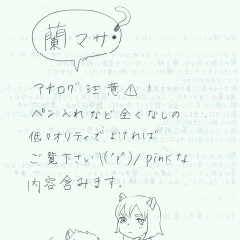 蘭マサ
アナログ注意⚠
ペン入れなど全くなしの
低クオリティでよければ
ご覧下さい\('ρ')/pinkな
内容含みます。